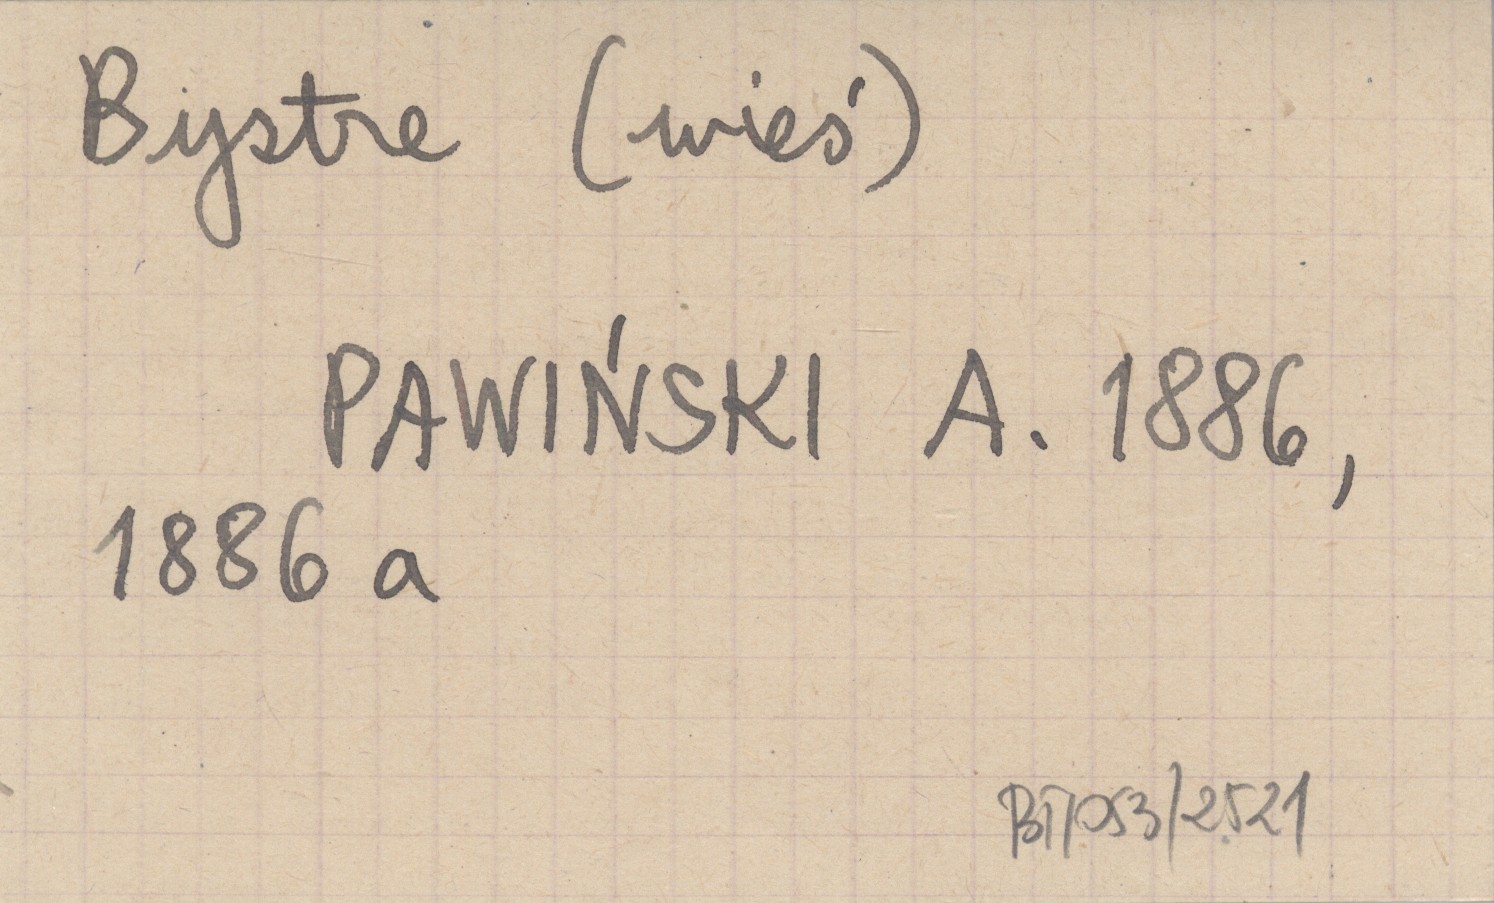 Bystre (wieś)
PAWIŃSKI A. 1886,
1886 a
BT/053/2521